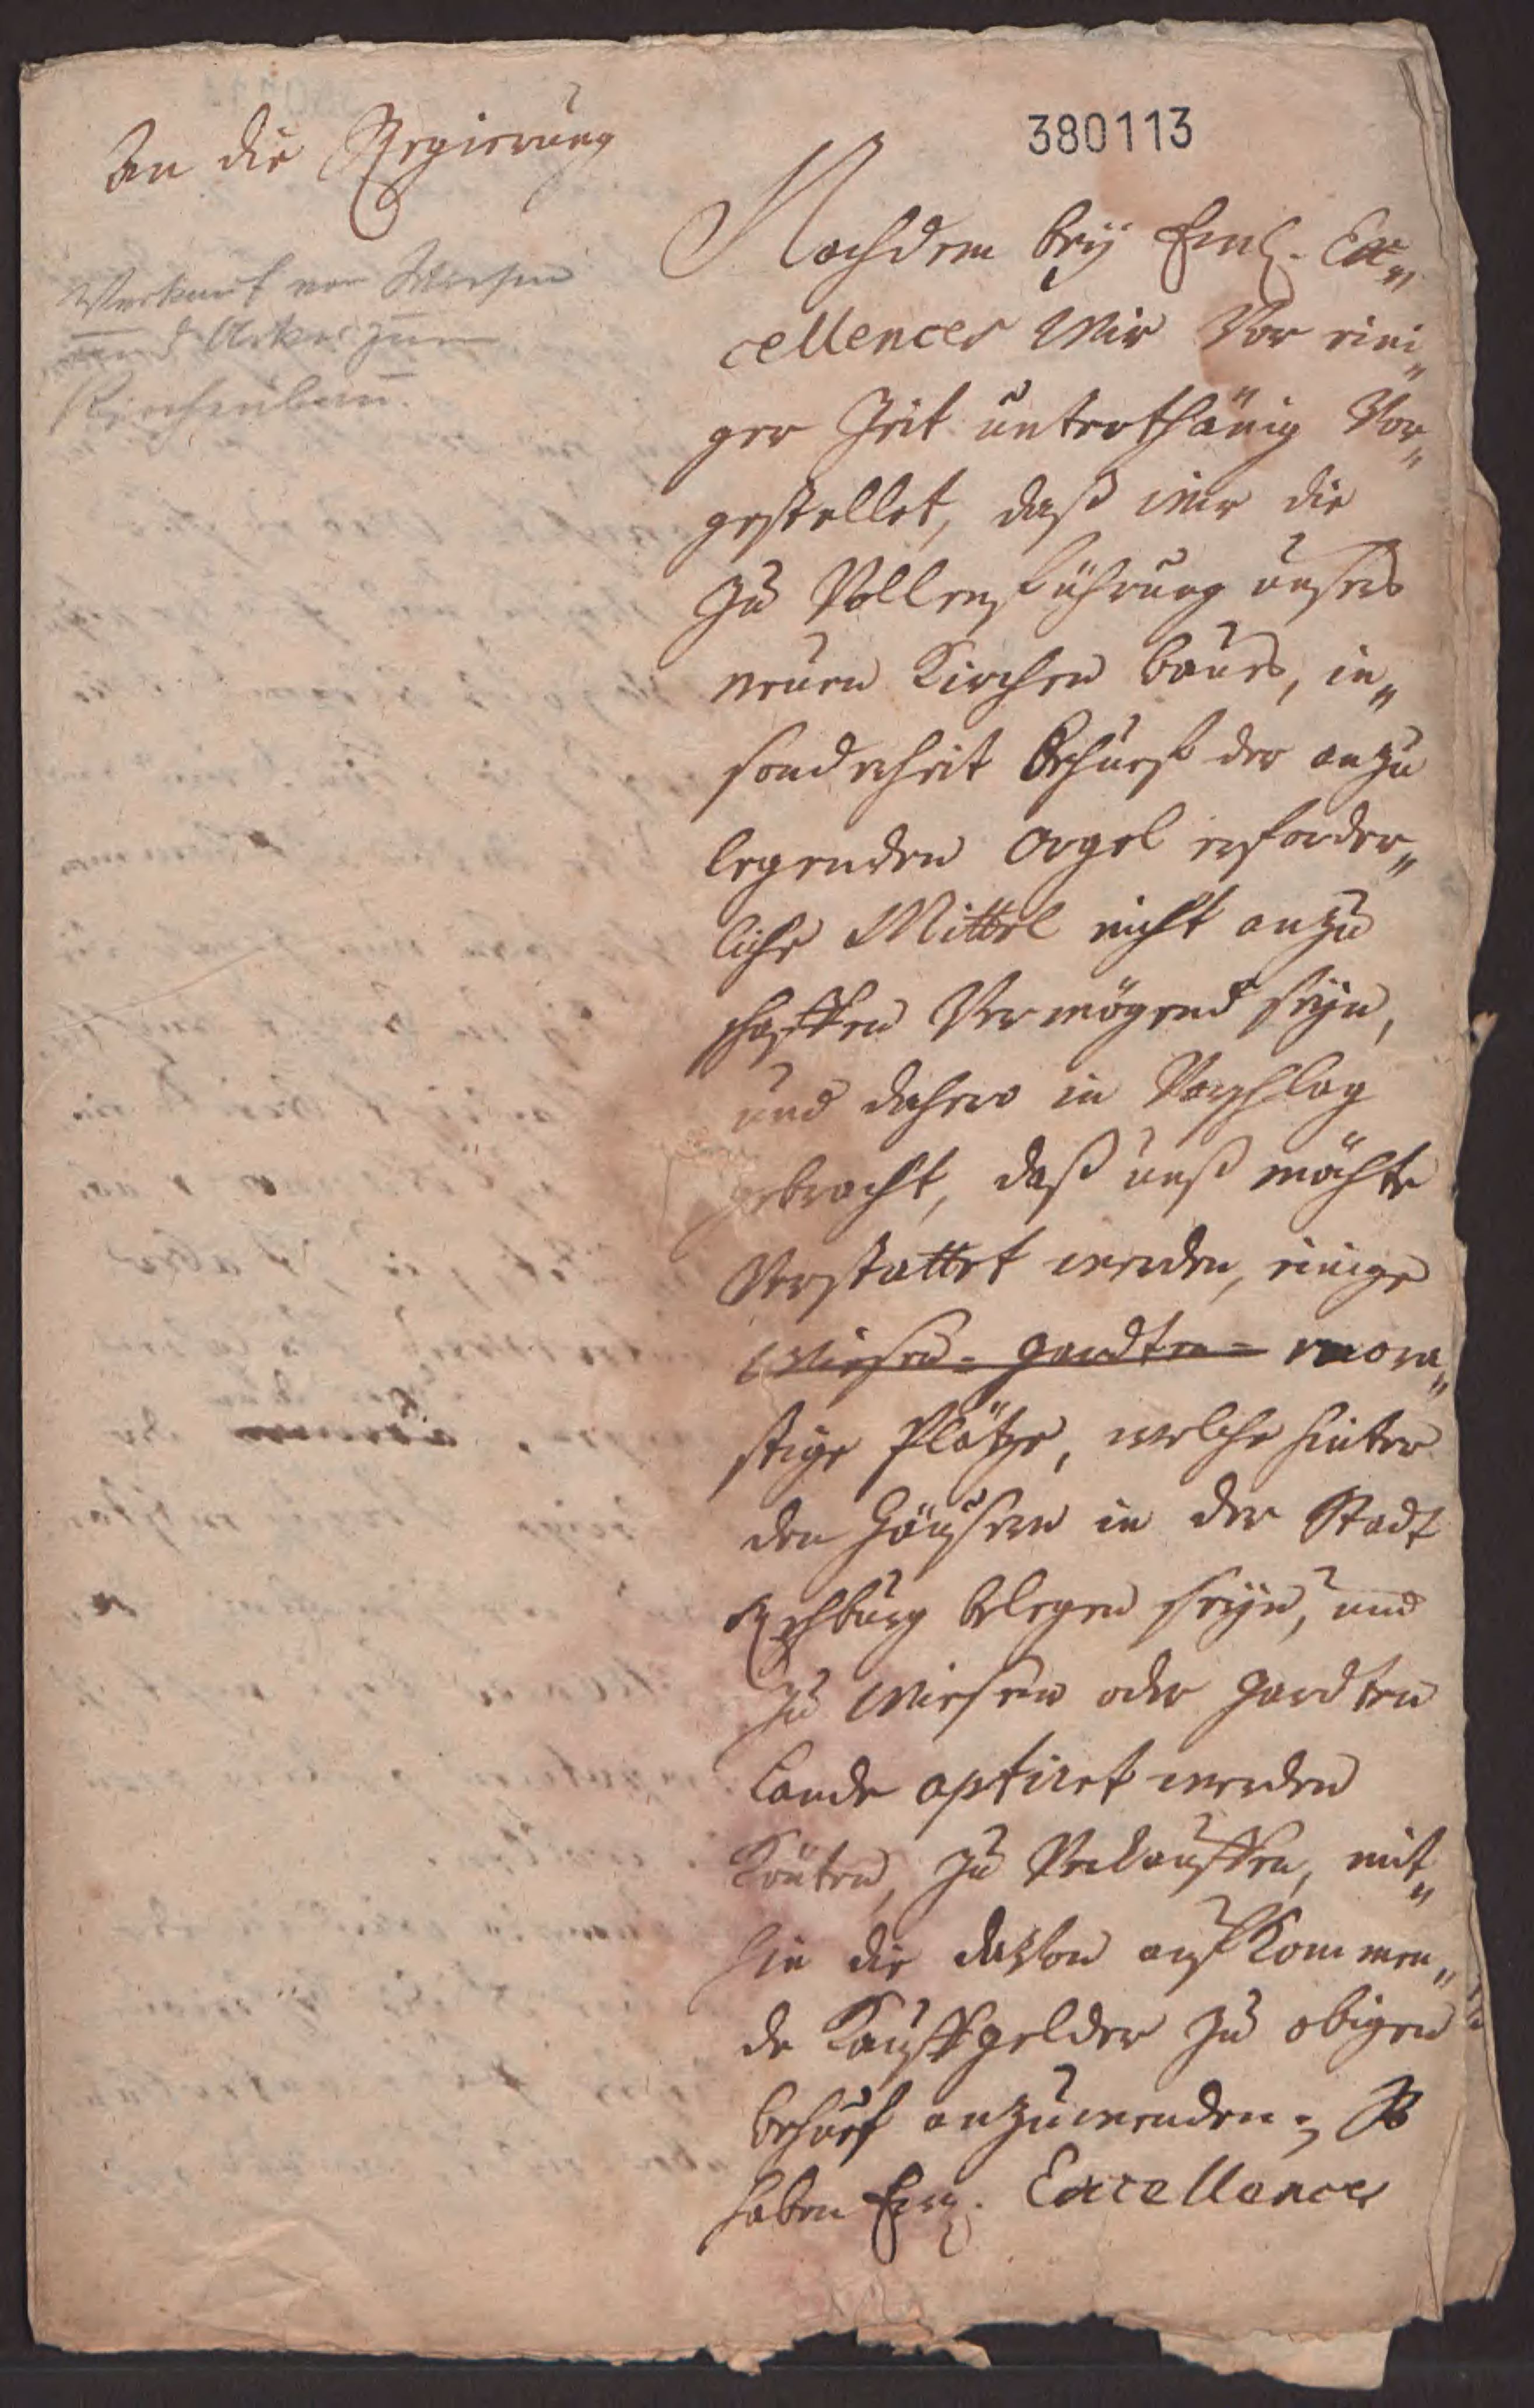 380113
An die Regierung
Verkauf von Wiesen
und Acker zum
Kirchenbau.
Nachdem bey Ew. Ex„
cellences Wir Vor eini„
ger Zeit unterthänig Vor„
gestellet, daß wir die
zu Vollenführung unsers
neuen Kirchen baues, in„
sonderheit Behuef der anzu
legenden Orgel erforder„
liche Mittel nicht anzu
schaffen Vermögend seyn,
und dahero in Vorschlag
gebracht, daß unß möchte
Verstattet werden, einige
Wiesen- gardten- mora„
stige Plätze, welche hinter
den Häusern in der Stadt
Rehburg belegen seyn, und
zu Wiesen oder gardten
Lande aptiret werden
Könten, zu Verkauffen, mit„
hin die davon aufkommen„
de Kauffgelder zu obigen
behuef anzuwenden; So
haben Ew. Excellences